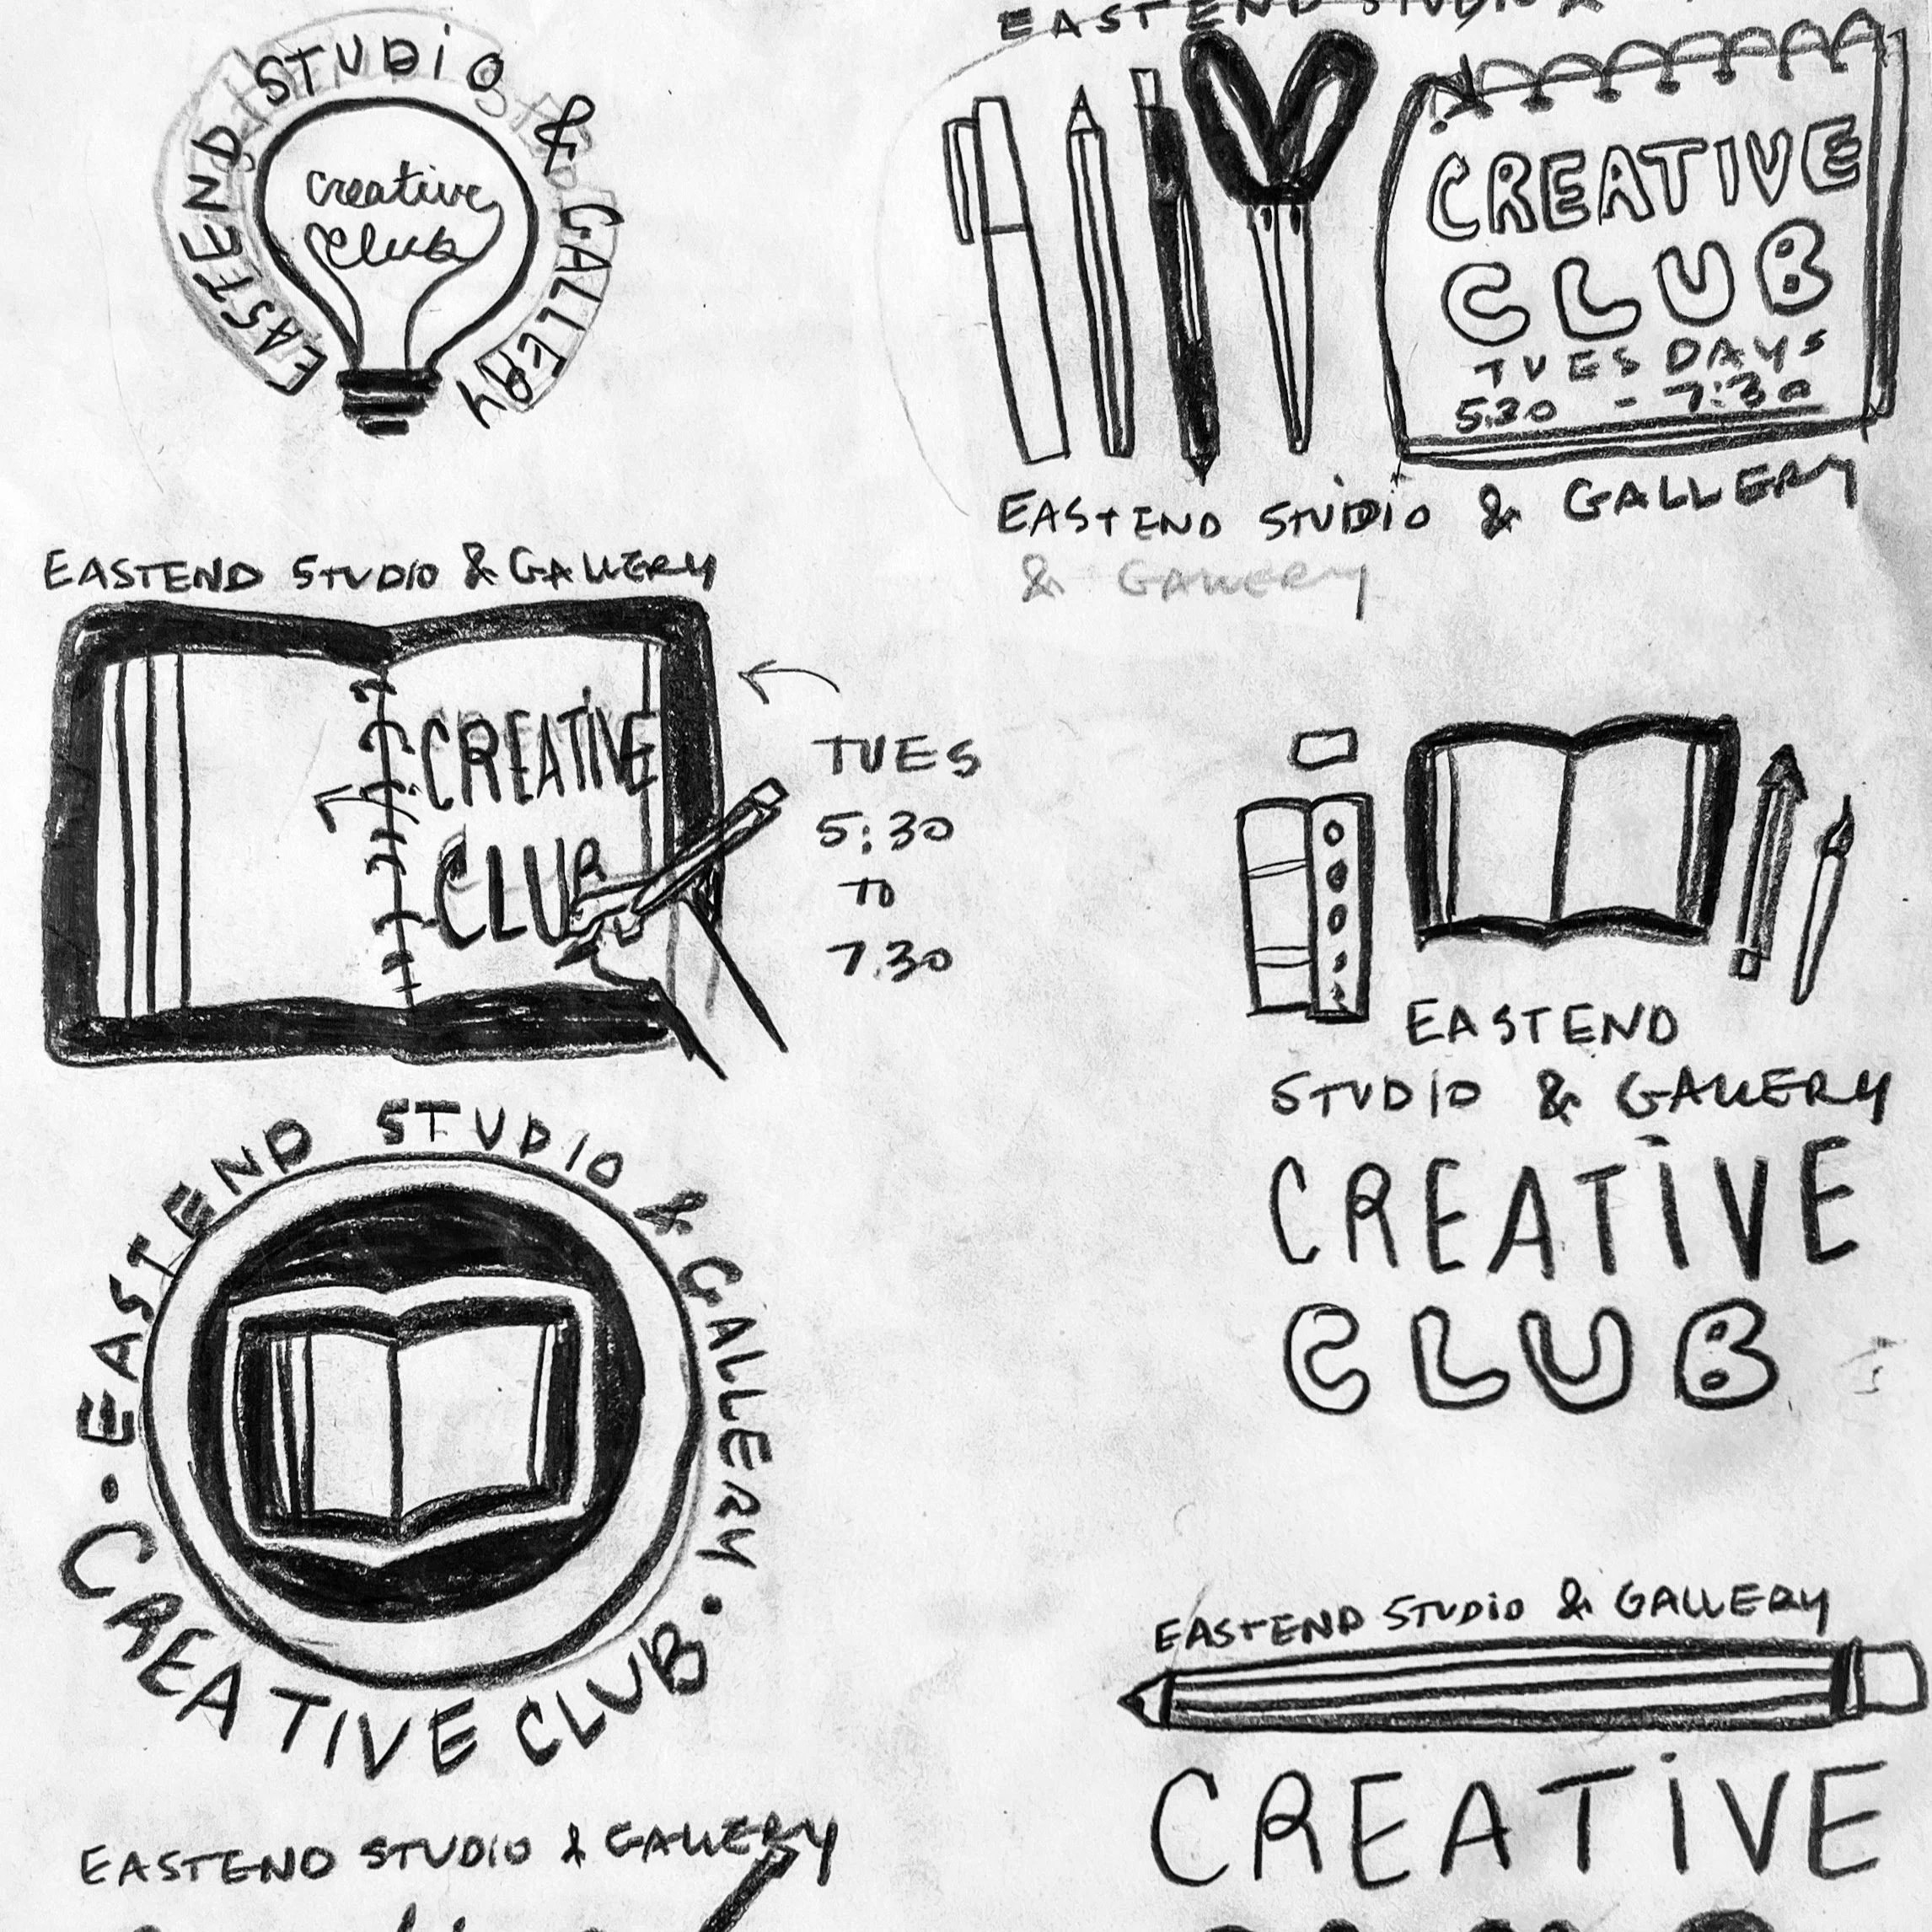 EASTEND STUDIO & GALLERY
creative
club
EASTEND STUDIO &
CREATIVE
CLUB
TUESDAYS
5:30 - 7:30
EASTEND STUDIO & GALLERY
& GALLERY
EASTEND STUDIO & GALLERY
CREATIVE
CLUB
TUES
5:30
TO
7.30
EASTEND
STUDIO & GALLERY
CREATIVE
CLUB
EASTEND STUDIO & GALLERY
· CREATIVE CLUB ·
EASTEND STUDIO & GALLERY
CREATIVE
EASTEND STUDIO & GALLERY